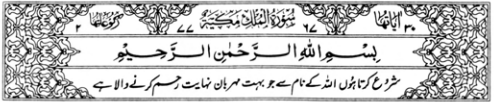 اٰیاتھا ۳۰ ۶۷ سُوْرَةُ الْمُلْكِ مَكِّيَّةٌ ۷۷ رکوعاتھا ۲
بِسْمِ اللّٰهِ الرَّحْمٰنِ الرَّحِيْمِ
شروع کرتا ہوں اللہ کے نام سے جو بہت مہربان نہایت رحم کرنے والا ہے